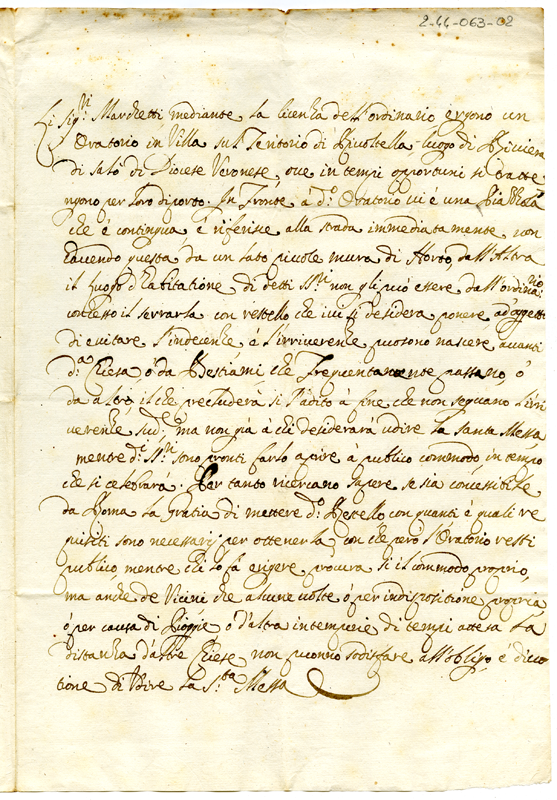 2-44-063-02
Li Sig.ri Marchetti mediante la licenza dell'ordinario ergono un
Oratorio in Villa sul Teritorio di Rivoltella, luogo di Riviera
di Salò di Diocese Veronese, oue in tempi opportuni si tratte
ngono per loro diporto. In Fronte a d.o Oratorio ui è una Piazzola
che è contingua è riferisse alla strada immediatamente, non
hauendo questa da un lato piccole mura di Horto, dall'Altra
il luogo d'habitatione di detti SS.ri non gli può essere dall'ordina.rio
concesso il serrarla con restello che iui si desidera ponere, ad oggetto
di euitare l'indecenze, ò l'irriuerenze puossono nascere auanti
d.a Chiesa ò da Bestiami, che frequentamente passano, ò
da altro, il che precluderà si l'adito à fine che non seguano l'irri
uerenze sud.e, ma non già à chi desiderarà udire la Santa Messa
mentre d.i SS.ri sono pronti farlo aprire à publico commodo in tempo
che si celebrara. Per tanto ricercano sapere se sia concessibile
da Roma la Gratia di mettere d.o Restello con quanti è quali re
quisiti sono necessarij per ottenerla, con che però l'Oratorio resti
publico, mentre chi lo fà erigere procura si il commodo proprio,
ma anche de Vicini che alcune uolte ò per indispositione propria
ò per causa di Pioggie ò d'altra intemperie di tempi attesa la
distanza d'altre Chiese non puonno sodisfare all'obligo, e diuo
tione di Udire la S.ta Messa